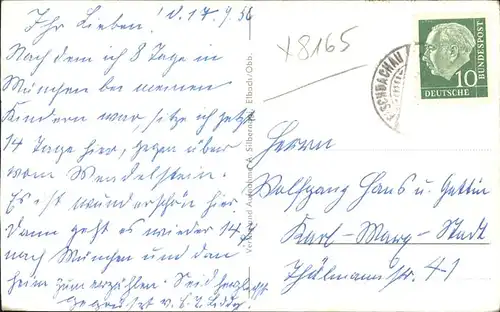 Ihr Lieben! d. 17.9.56
Nachdem ich 8 Tage in
München bei meinen
Kindern war, sitze ich jetzt
14 Tage hier, gegenüber
vom Wendelstein.
Es ist wunderschön hier.
Dann geht es wieder 14
nach München und dann
heim zum erzählen. Seid herzlichst
gegrüsst v. E. L.
x8165
FISCHBACHAU
10
DEUTSCHE
BUNDESPOST
Verlag und Aufnahme A. Silbernagl, Elbach/Obb.
Herrn
Wolfgang Hans u. Gattin
Karl-Marx-Stadt
Thälmannstr. 41